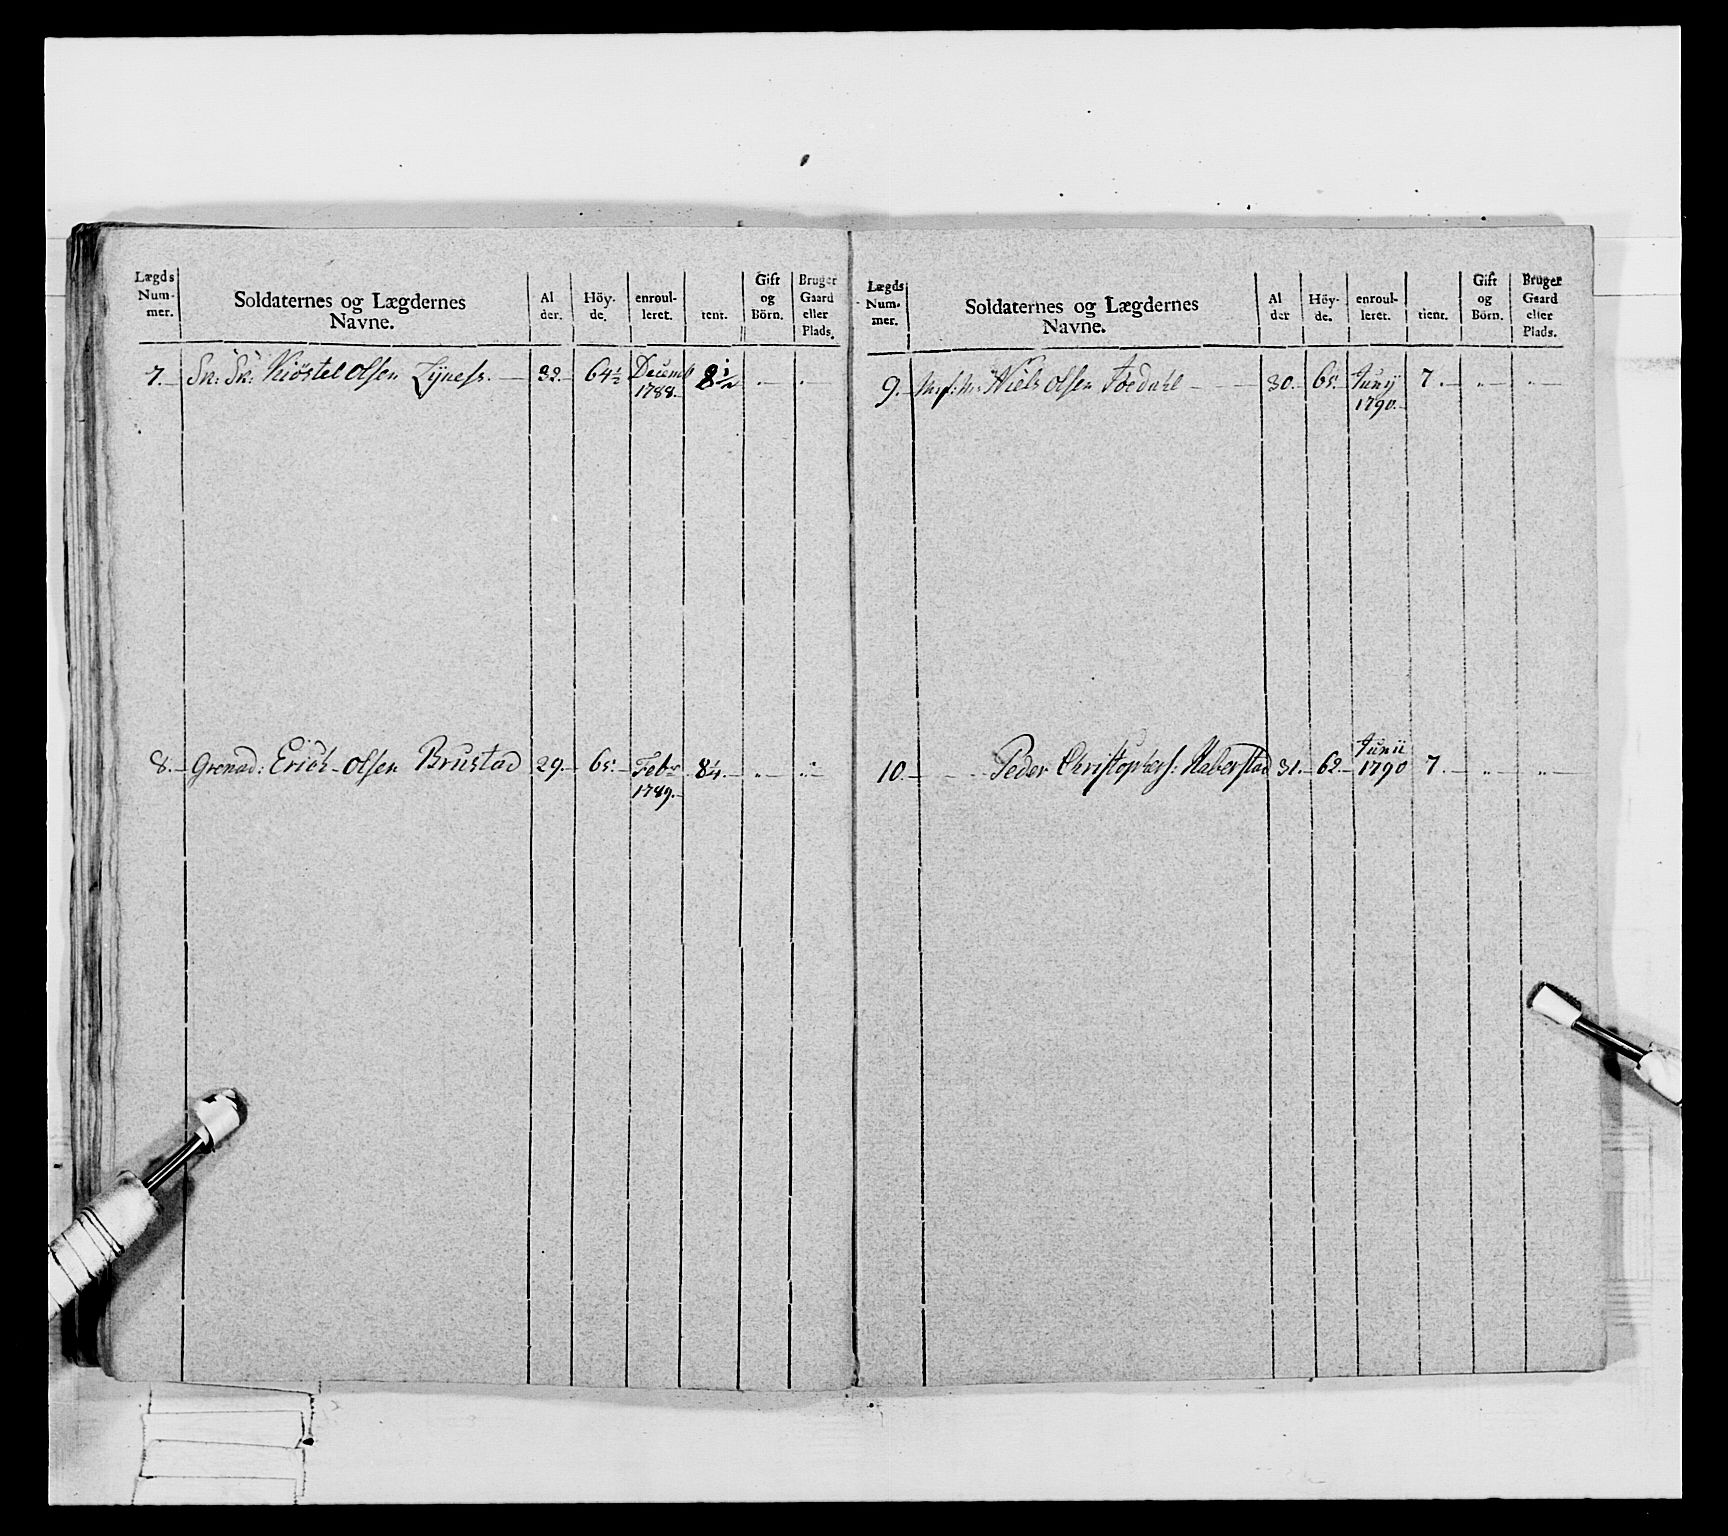 Lægds Num- mer.
Soldaternes og Lægdernes Navne.
Al der.
Höy- de.
enroul- leret.
tient.
Gift og Börn.
Bruger Gaard eller Plads.
7.— Kiöstel Olsen — 32.— 64½ Decemb 8½ „— „—
1788.—
8.— Grenad: Erich Olsen Brustad 29.— 65.— Febr 8¼.— „— „—
1789.—
Lægds Num- mer.
Soldaternes og Lægdernes Navne.
Al der
Höy- de.
enroul- leret.
tient.
Gift og Börn.
Bruger Gaard eller Plads.
9.— Niels Olsen — 30.— 65.— Junÿ 7.— „— „—
1790.—
Junii
10.— Peder Christophers: Haberstad 31.— 62.— 1790 7.— „— „—